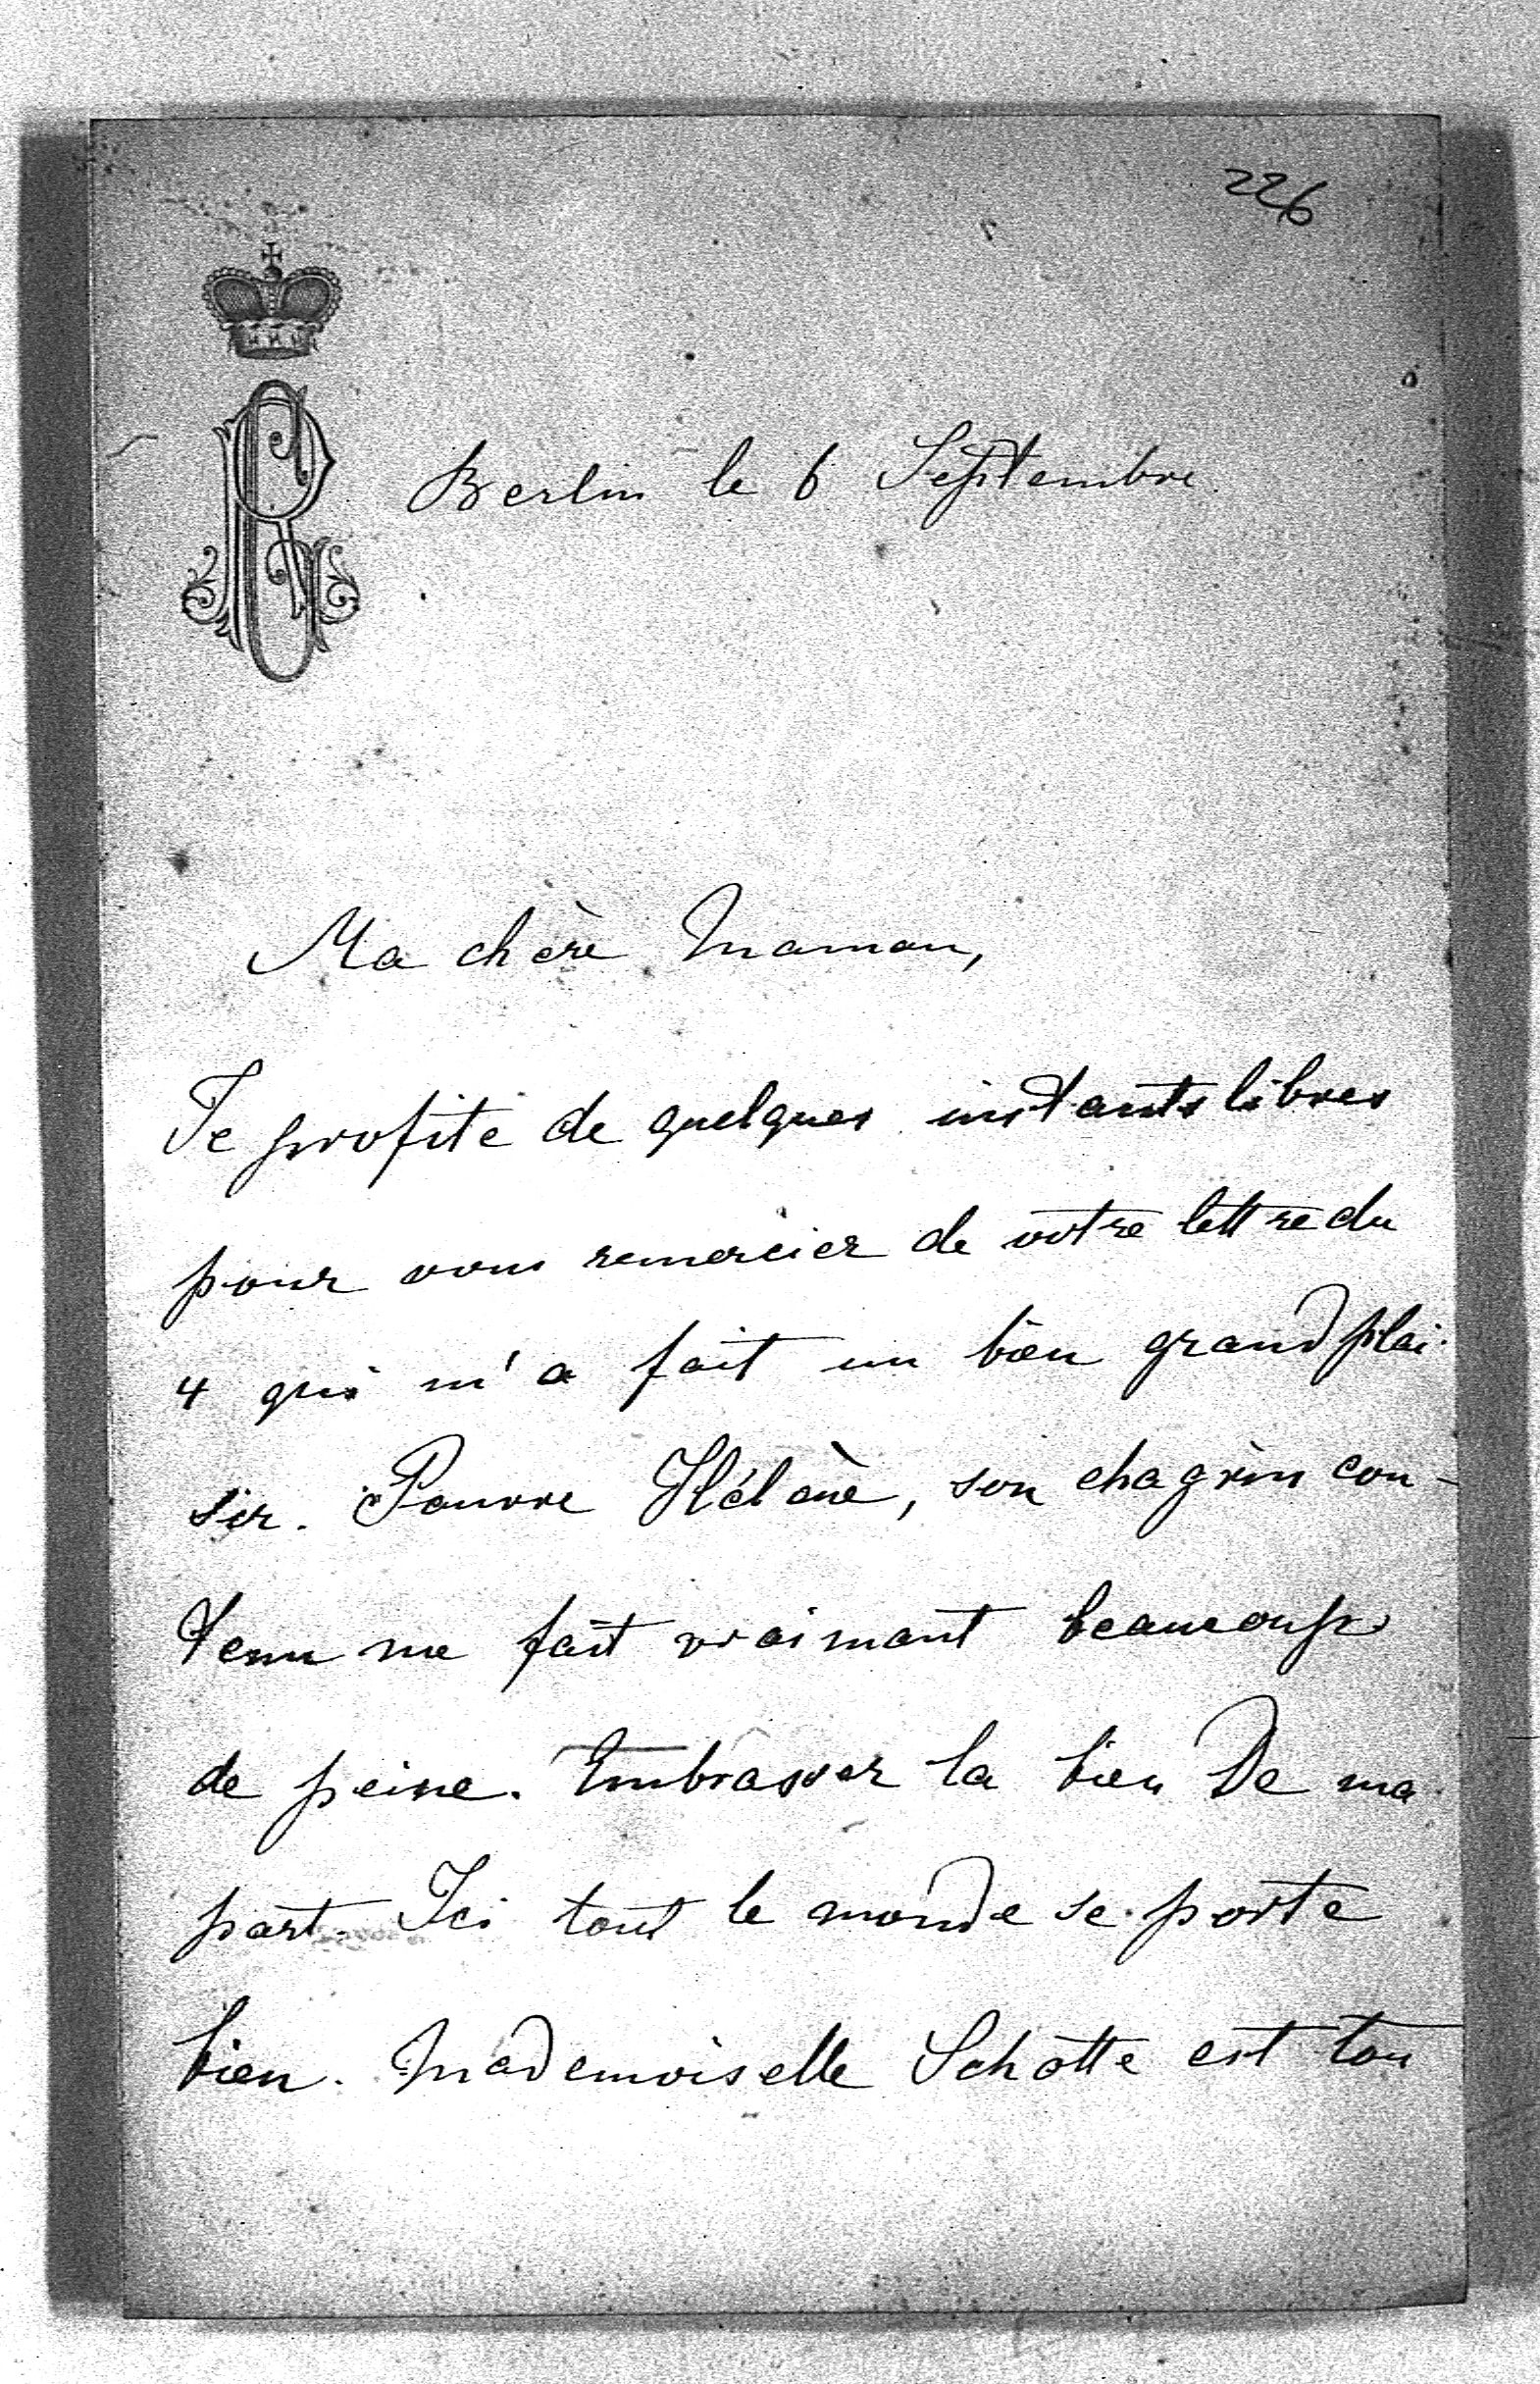 226
Berlin le 6 Septembre
Ma chère Maman,
Je profite de quelques instants libres
pour vous remercier de votre lettre du
4 qui m'a fait un bien grand plai-
sir. Pauvre Hélène, son chagrin con-
tenu me fait vraimant beaucoup
de peine. Embrasser la bien De ma
part. Ici tout le monde se porte
bien. Mademoiselle Schotte est tou